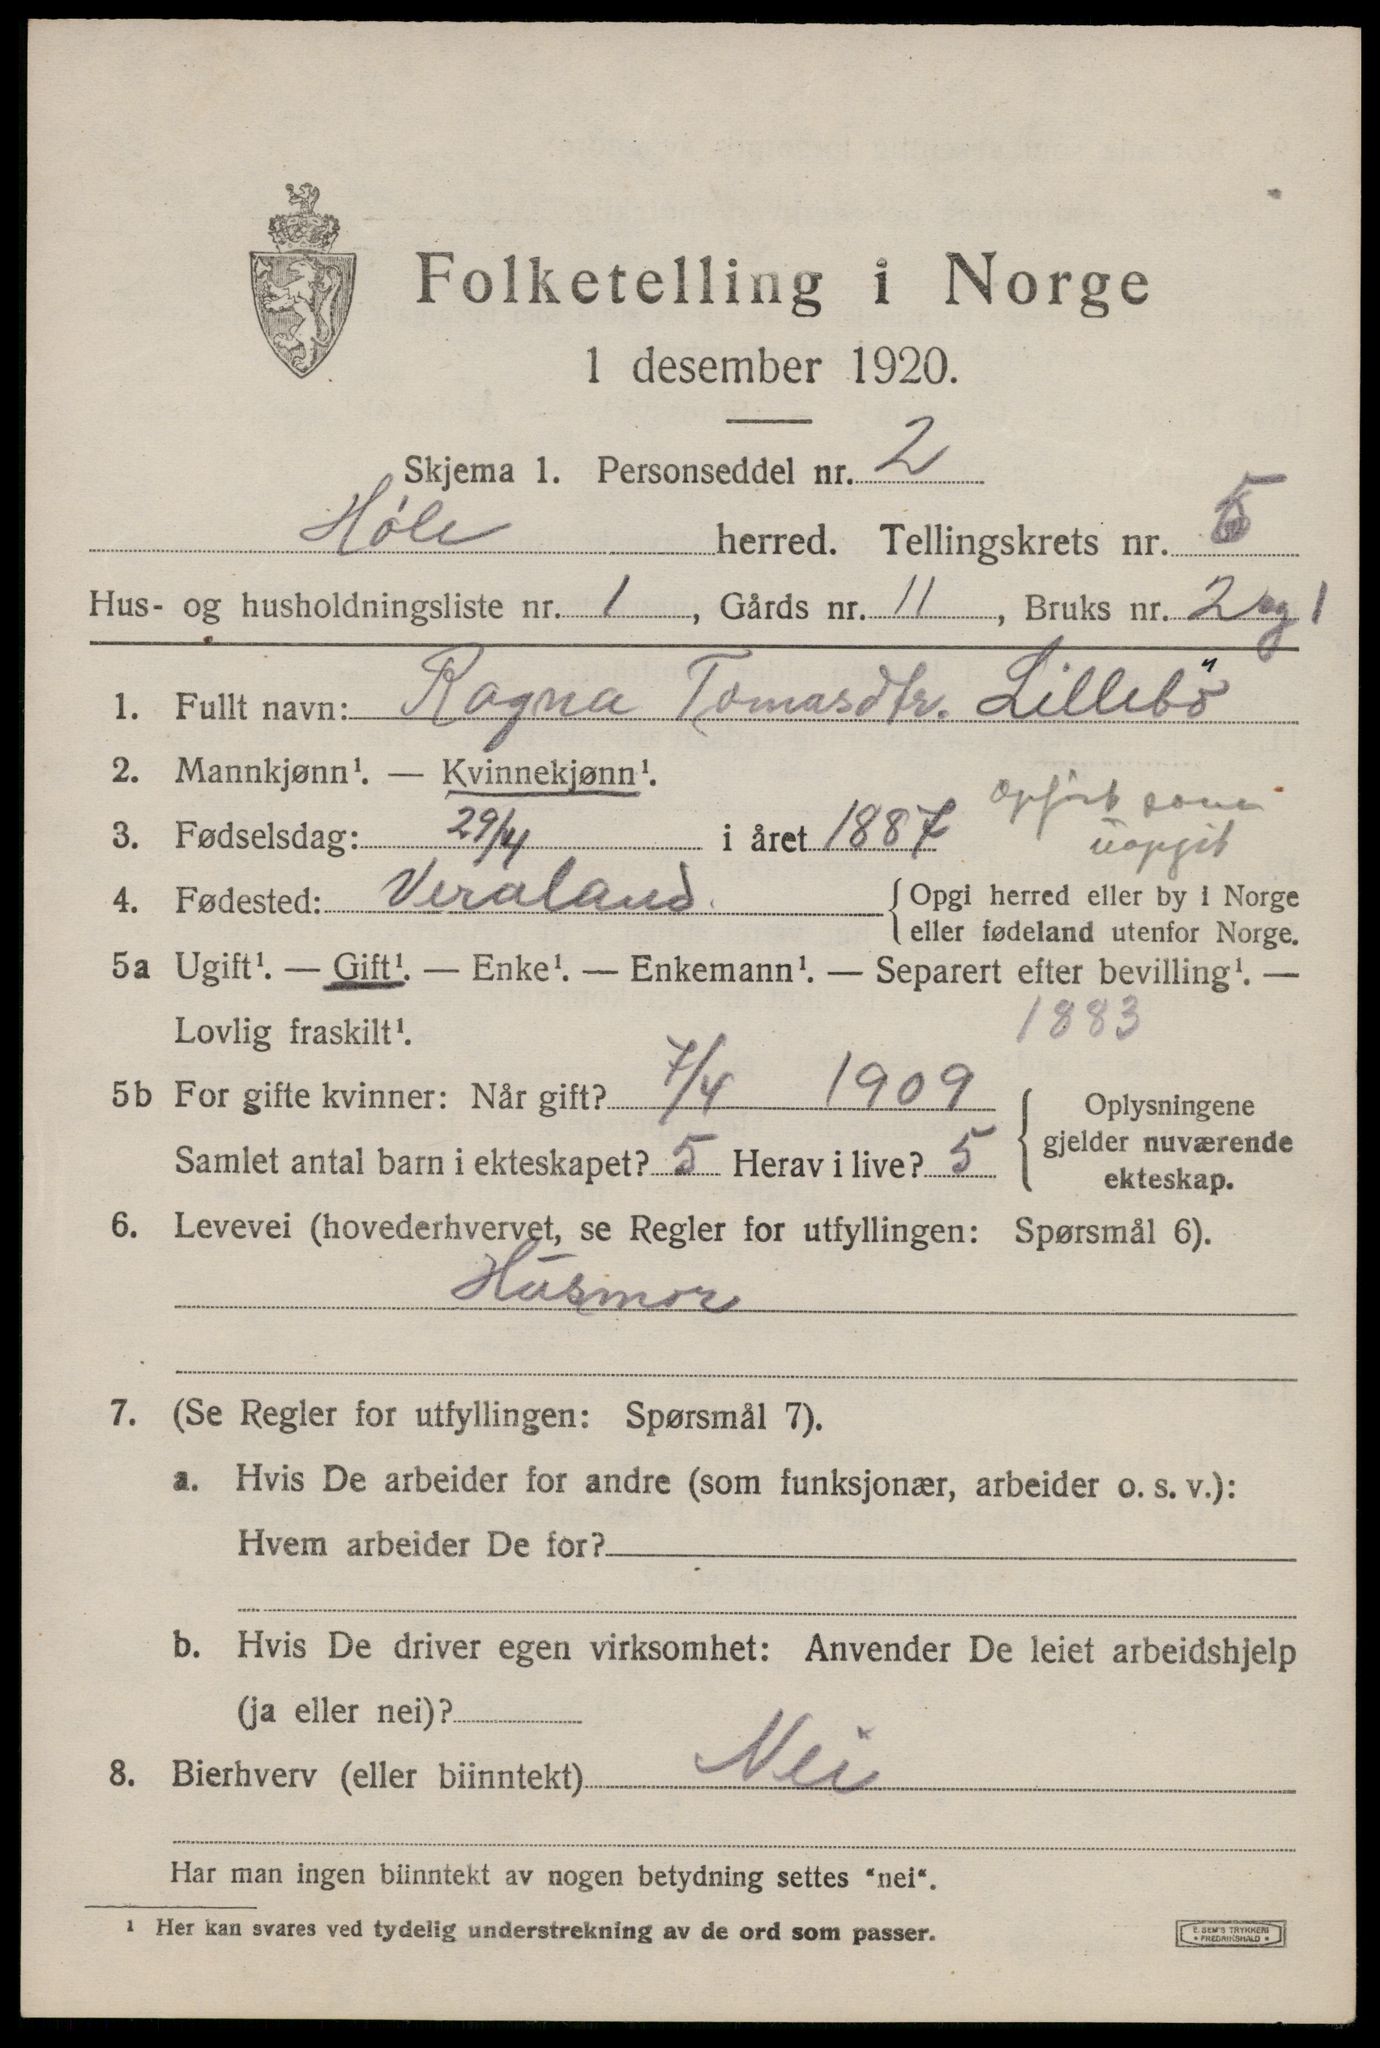 Folketelling i Norge
1 desember 1920.
Skjema 1. Personseddel nr. 2
Høle herred. Tellingskrets nr. 5
Hus- og husholdningsliste nr. 1, Gårds nr. 11, Bruks nr. 2 og 1
1. Fullt navn: Ragna Tomasdtr. Lillebö
2. Mannkjønn¹. — Kvinnekjønn¹.
opført som
3. Fødselsdag: 29/4 i året 1887
uopgit
4. Fødested: Veraland. { Opgi herred eller by i Norge
eller fødeland utenfor Norge.
5a Ugift¹. — Gift¹. — Enke¹. — Enkemann¹. — Separert efter bevilling¹. —
Lovlig fraskilt¹. 1883
5b For gifte kvinner: Når gift? 7/4 1909
Samlet antal barn i ekteskapet? 5 Herav i live? 5
{ Oplysningene
gjelder nuværende
ekteskap.
6. Levevei (hovederhvervet, se Regler for utfyllingen: Spørsmål 6).
Husmor
7. (Se Regler for utfyllingen: Spørsmål 7).
a. Hvis De arbeider for andre (som funksjonær, arbeider o. s. v.):
Hvem arbeider De for?
b. Hvis De driver egen virksomhet: Anvender De leiet arbeidshjelp
(ja eller nei)?
8. Bierhverv (eller biinntekt) Nei
Har man ingen biinntekt av nogen betydning settes "nei".
¹ Her kan svares ved tydelig understrekning av de ord som passer.
E. SEM'S TRYKKERI
• FREDRIKSHALD •